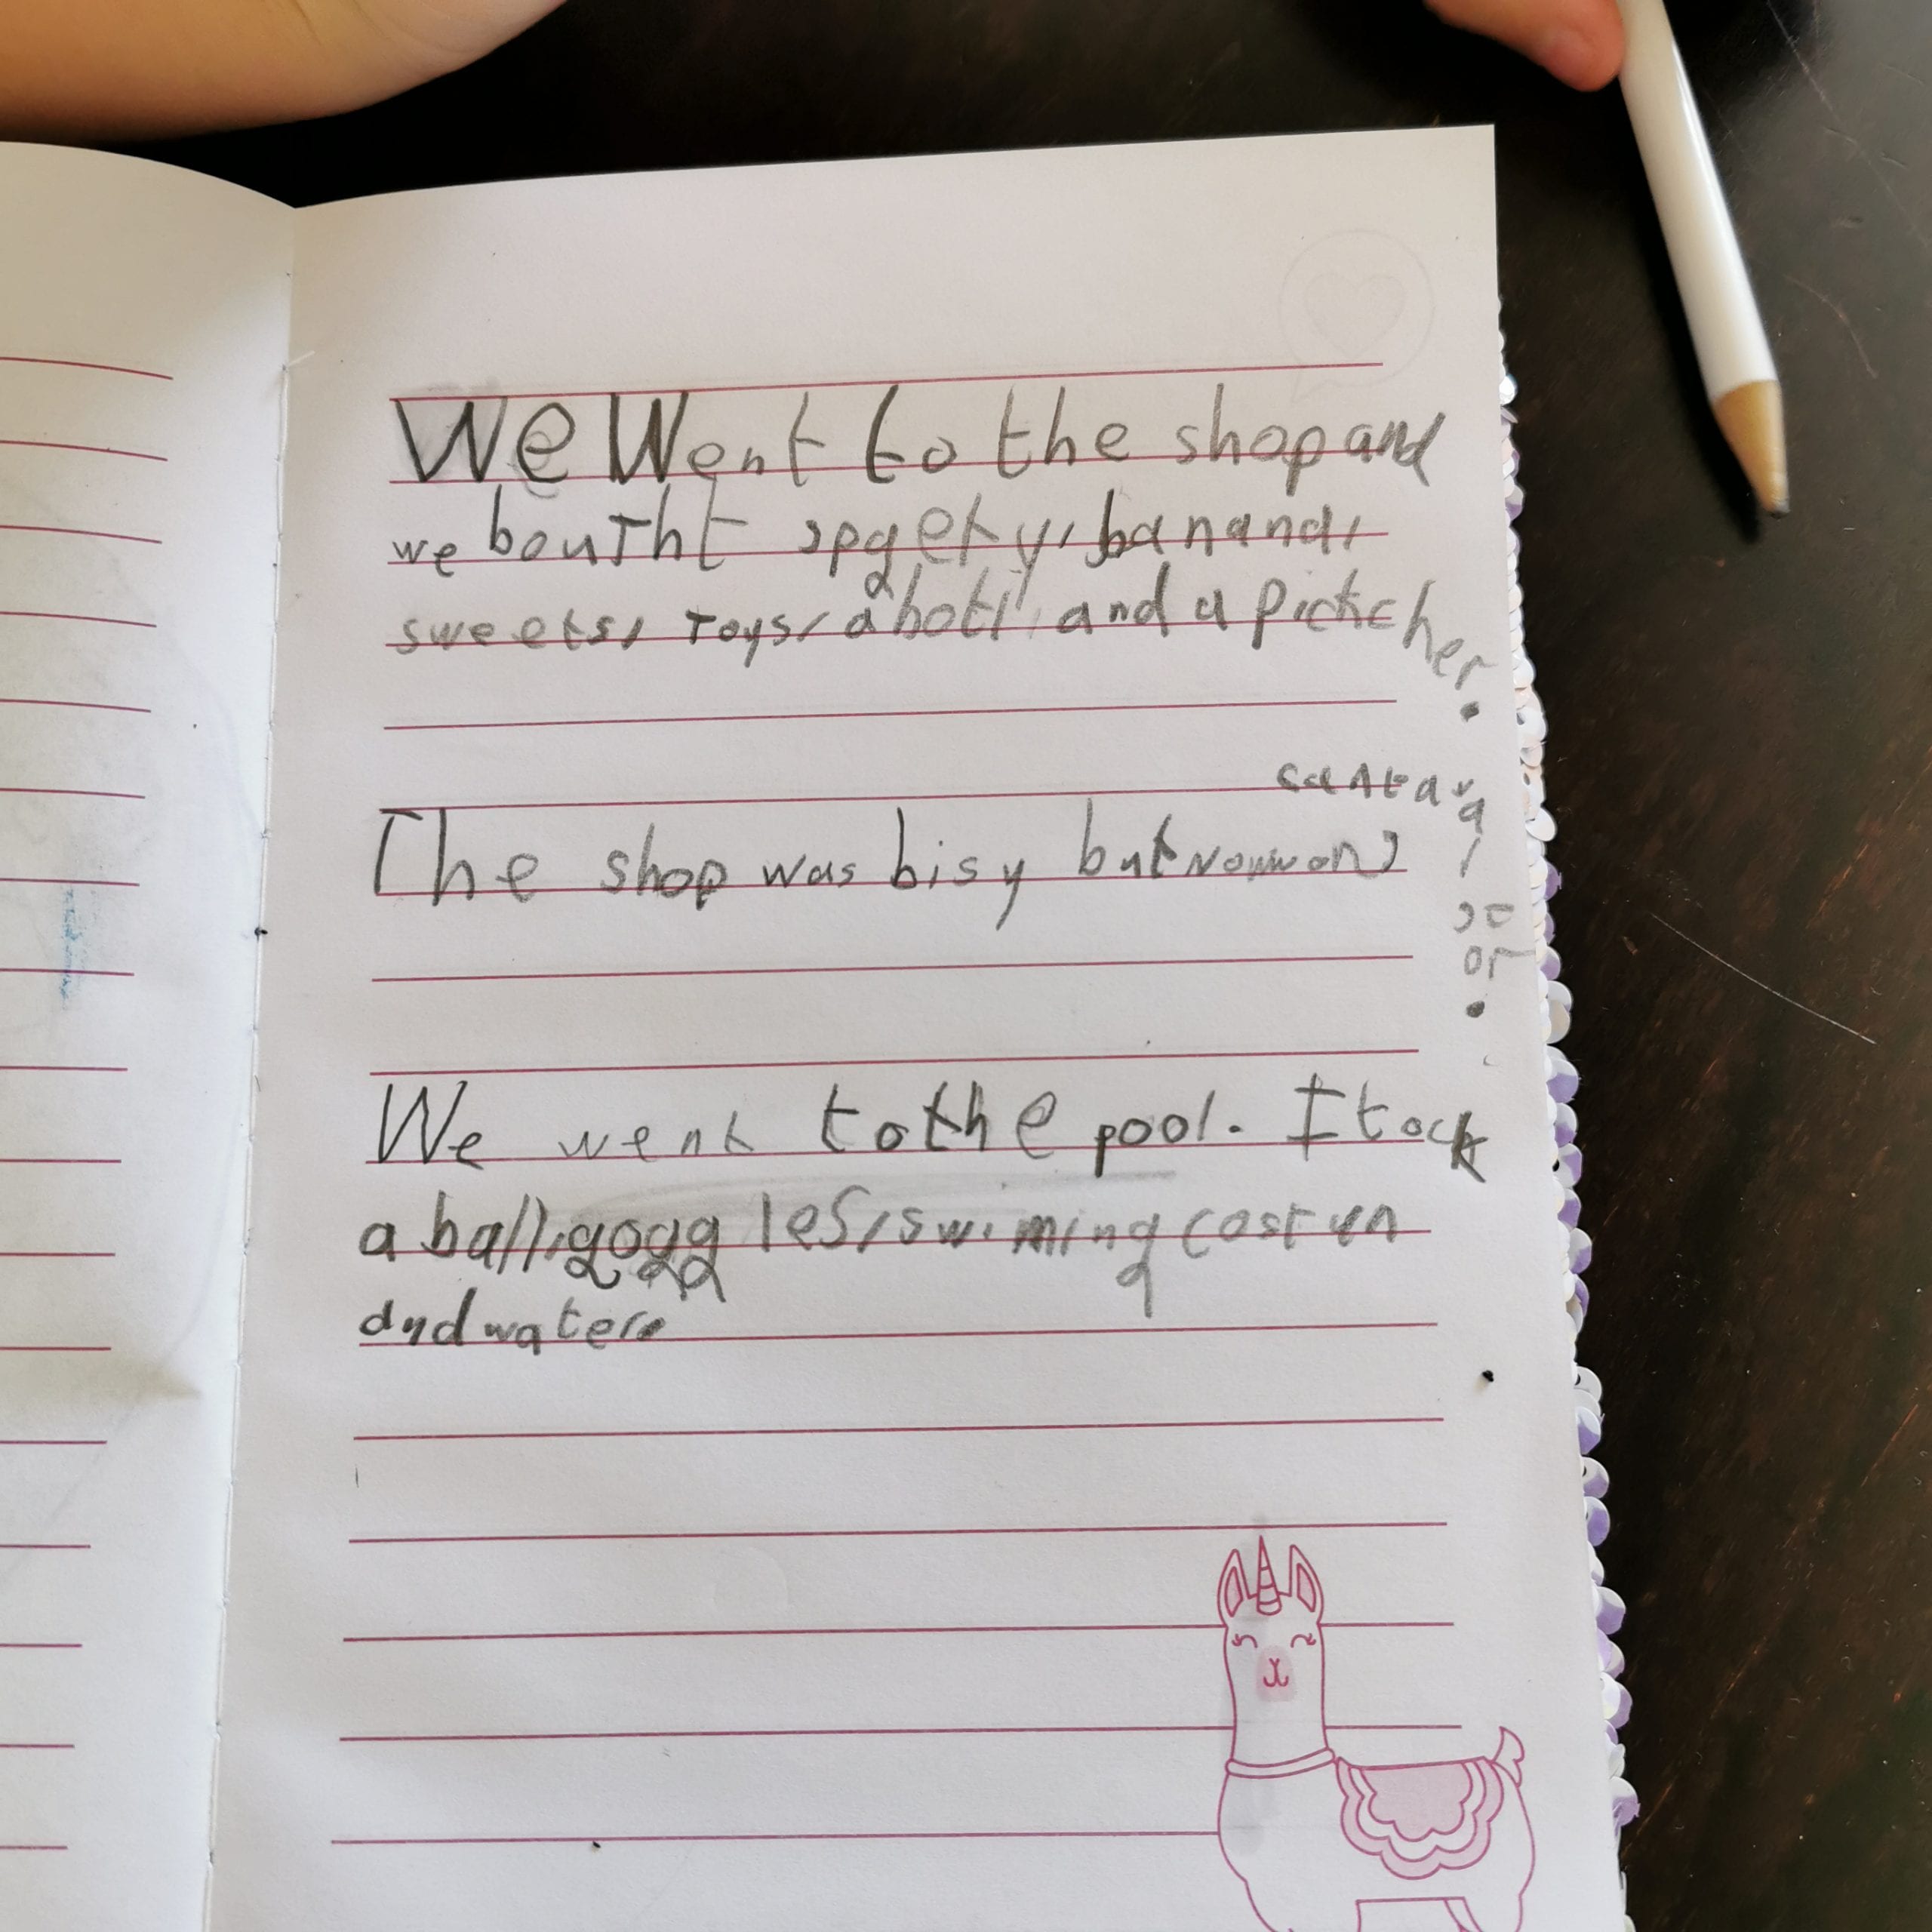 We Went to the shop and
we bourtht spgety, banana,
sweets, Toys, a botl, and a pictcher.
The shop was bisy but
We went to the pool. I tock
a ball, goggles, swiming costun
and water.